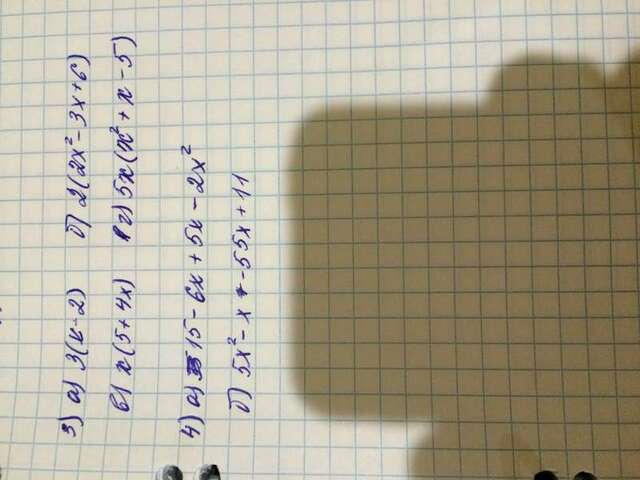 3) а) 3(x-2) б) 2(2x²-3x+6)
в) x(5+4x) г) 5x(x²+x-5)
4) а) 15-6x+5x-2x²
б) 5x²-x-55x+11